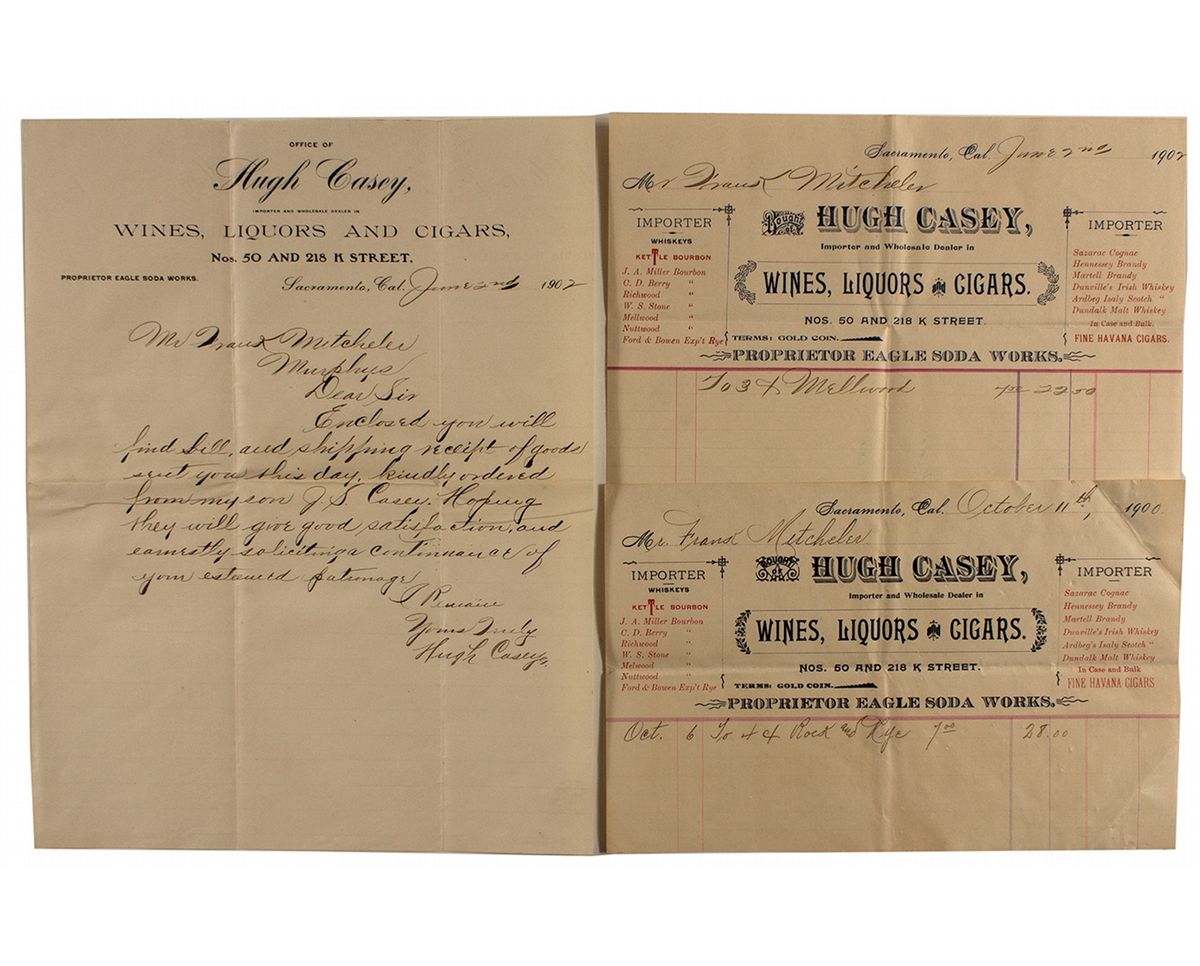 OFFICE OF
Hugh Casey,
IMPORTER AND WHOLESALE DEALER IN
WINES, LIQUORS AND CIGARS,
Nos. 50 AND 218 K STREET.
PROPRIETOR EAGLE SODA WORKS.
Sacramento, Cal. June 2nd 1902
Mr Frank Mitcheler
Murphys
Dear Sir
Enclosed you will
find bill, and shipping receipt of goods
sent you this day, kindly ordered
from my son J. S. Casey. Hoping
they will give good satisfaction, and
earnestly soliciting a continuance of
your esteemed patronage
I Remain
Yours Truly
Hugh Casey.
Sacramento, Cal. June 2nd 1902
Mr Frank Mitcheler
IMPORTER
WHISKEYS
KETTLE BOURBON
J. A. Miller Bourbon
C. D. Berry "
Richwood "
W. S. Stone "
Mellwood "
Nuttwood "
Ford & Bowen Exp't Rye
Bought of
HUGH CASEY,
Importer and Wholesale Dealer in
WINES, LIQUORS CIGARS.
NOS. 50 AND 218 K STREET.
TERMS: GOLD COIN.
PROPRIETOR EAGLE SODA WORKS.
IMPORTER
Sazarac Cognac
Hennessey Brandy
Martell Brandy
Dunville's Irish Whiskey
Ardbeg Isaly Scotch "
Dundalk Malt Whiskey
In Case and Bulk.
FINE HAVANA CIGARS.
To 3 4 Mellwood 22 50
Sacramento, Cal. October 11th, 1900.
Mr. Frank Mitcheler
IMPORTER
WHISKEYS
KETTLE BOURBON
J. A. Miller Bourbon
C. D. Berry "
Richwood "
W. S. Stone "
Melwood "
Nuttwood "
Ford & Bowen Exp't Rye
BOUGHT OF
HUGH CASEY,
Importer and Wholesale Dealer in
WINES, LIQUORS CIGARS.
NOS. 50 AND 218 K STREET.
TERMS: GOLD COIN.
PROPRIETOR EAGLE SODA WORKS.
IMPORTER
Sazarac Cognac
Hennessey Brandy
Martell Brandy
Dunville's Irish Whiskey
Ardbeg's Isaly Scotch "
Dundalk Malt Whiskey
In Case and Bulk
FINE HAVANA CIGARS
Oct. 6 To 4 4 Rock and Rye 7 00 28.00